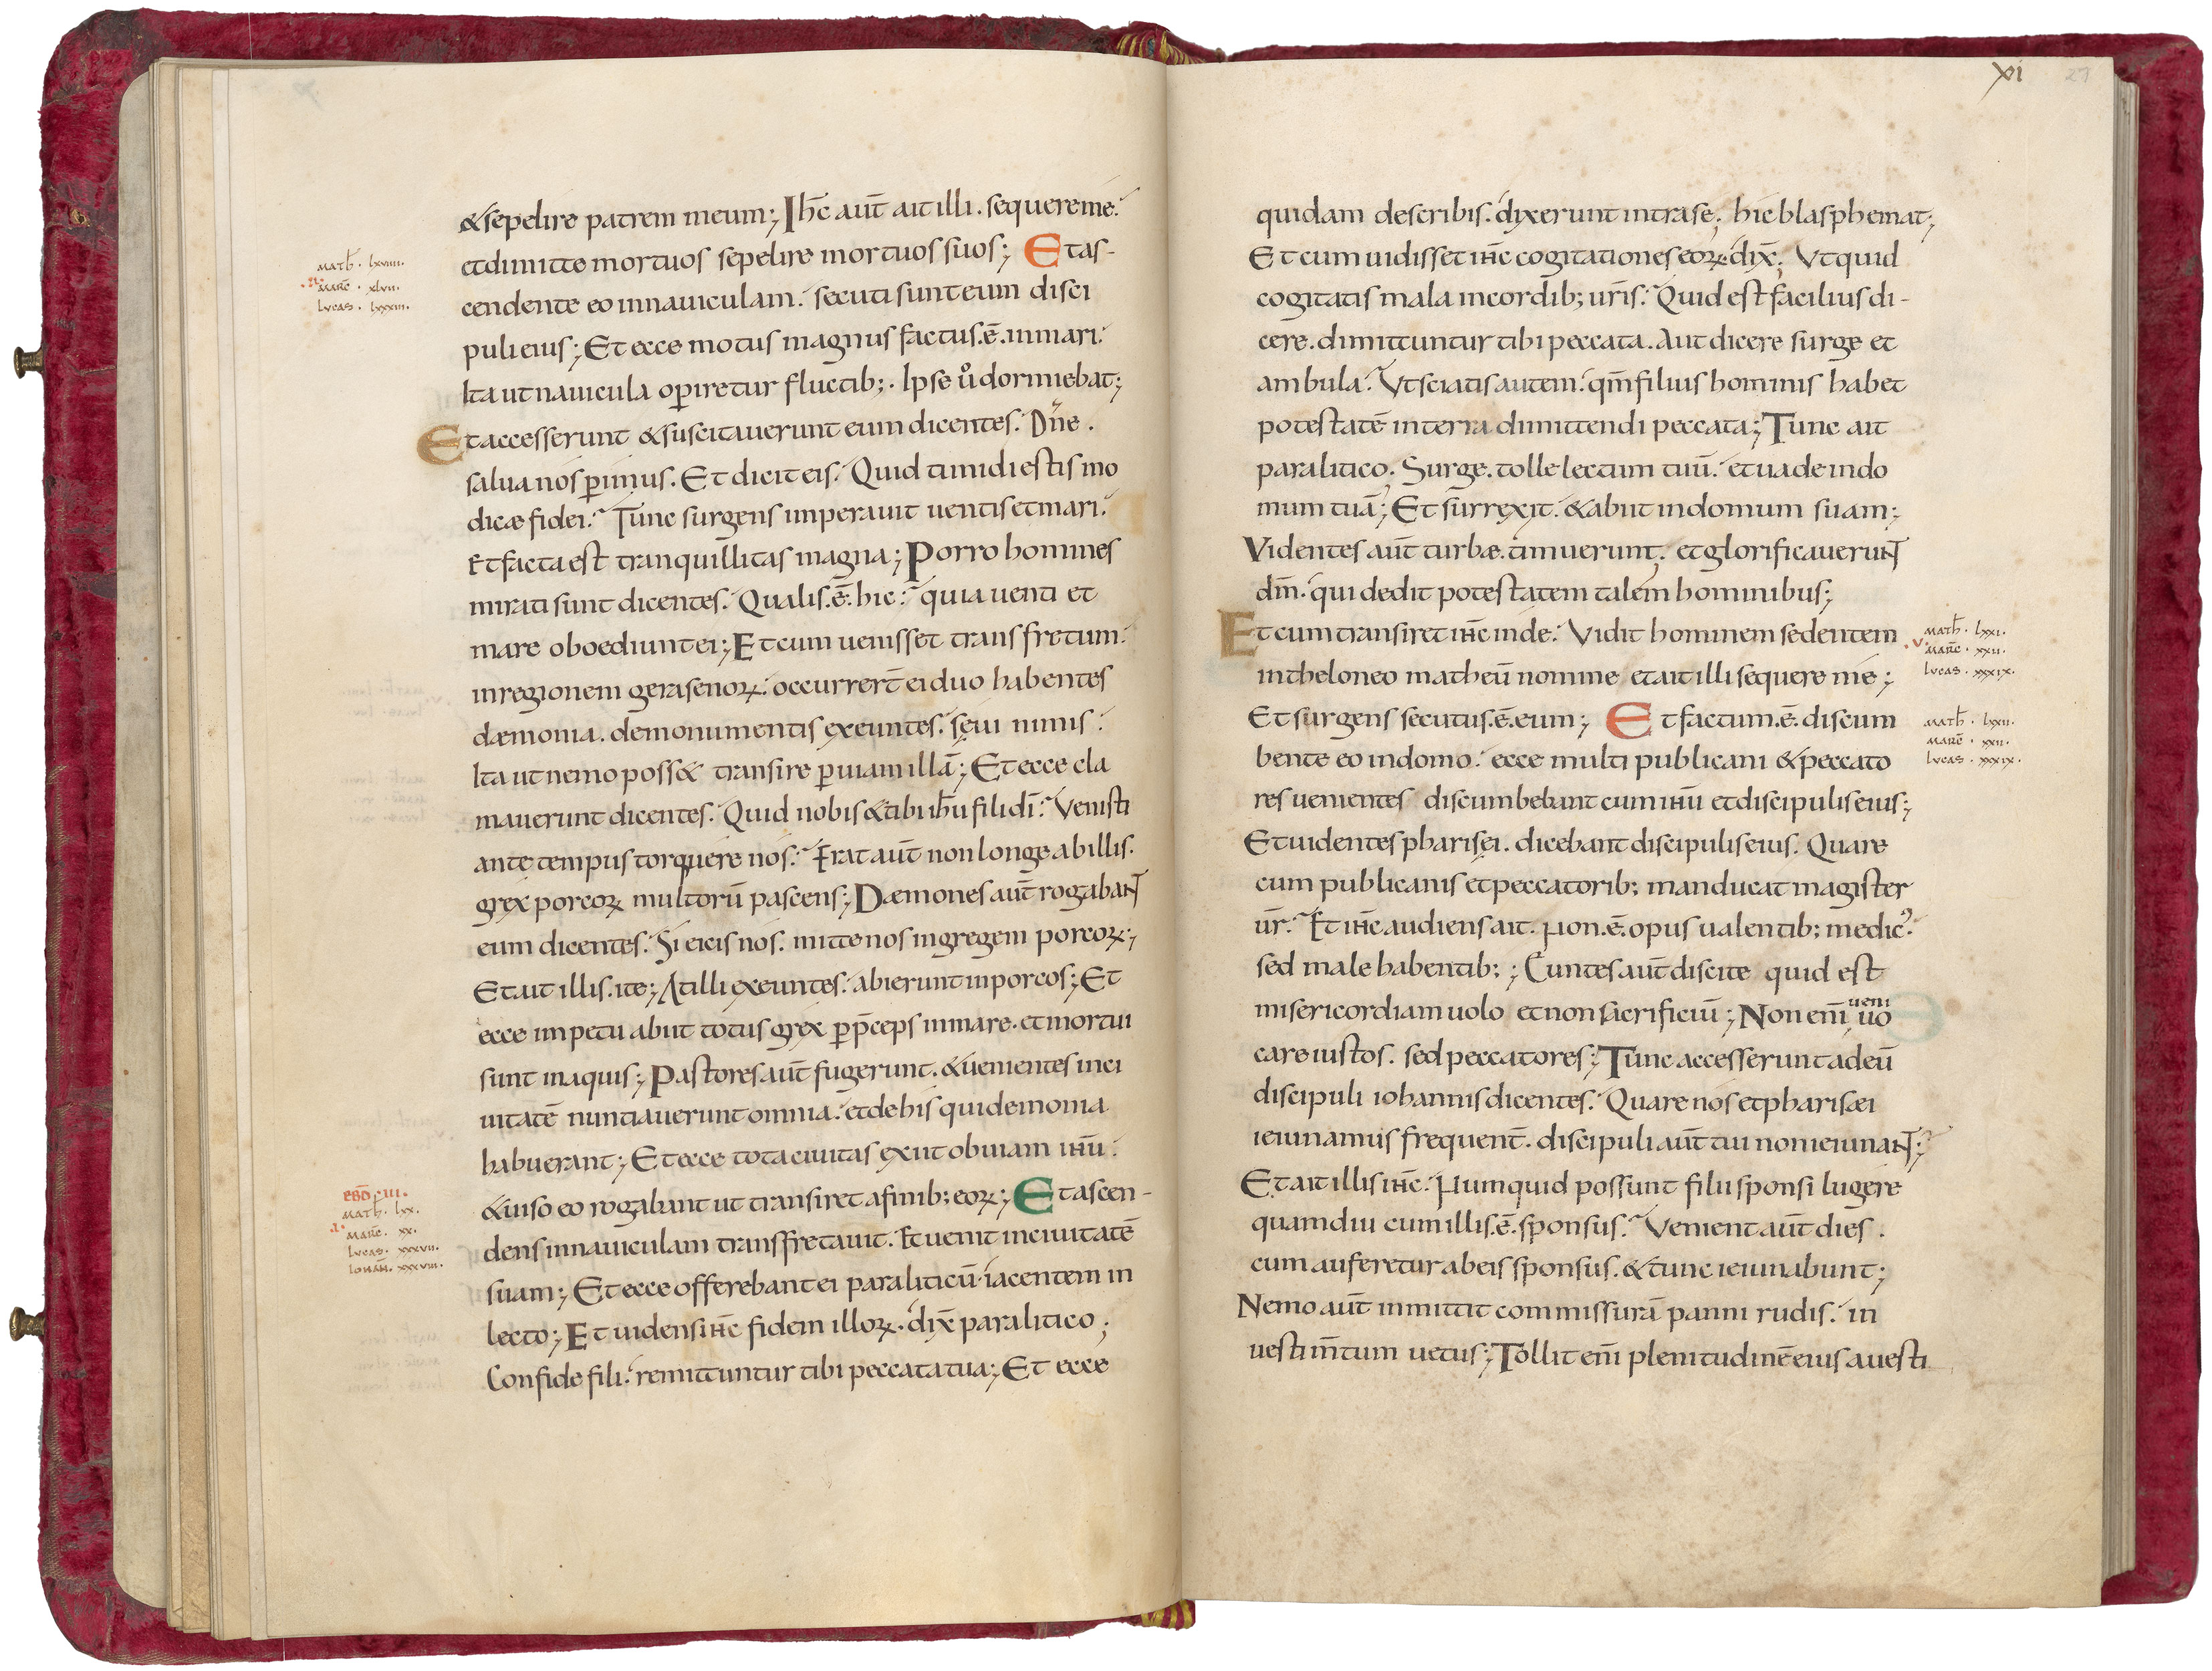 &sepelire patrem meum; Ihc̄ aut̄ ait illi. sequere me.
et dimitte mortuos sepelire mortuos suos; Et as-
cendente eo in nauiculam. secuti sunt eum disci
puli eius; Et ecce motus magnus factus .ē. in mari.
Ita ut nauicula oꝑiretur fluctib;. Ipse uͦ dormiebat;
Et accesserunt & suscitauerunt eum dicentes. Dn̄e.
salua nos ꝑimus. Et dicit eis. Quid timidi estis mo
dicæ fidei. Tunc surgens imperauit uentis et mari.
Et facta est tranquillitas magna; Porro homines
mirati sunt dicentes. Qualis .ē. hic. quia uenti et
mare oboediunt ei; Et cum uenisset trans fretum.
in regionem gerasenoꝝ. occurrer̄t ei duo habentes
dæmonia. de monumentis exeuntes. sęui nimis.
Ita ut nemo poss& transire ꝑ uiam illā; Et ecce cla
mauerunt dicentes. Quid nobis & tibi ih̄u fili dī. Venisti
ante tempus torquere nos. Erat aut̄ non longe ab illis.
grex porcoꝝ multorū pascens; Dæmones aut̄ rogabant
eum dicentes. Si eicis nos. mitte nos in gregem porcoꝝ;
Et ait illis. ite; At illi exeuntes. abierunt in porcos; Et
ecce impetu abiit totus grex ꝑ p̄ceps in mare. et mortui
sunt in aquis; Pastores aut̄ fugerunt. & uenientes in ci
uitatē nuntiauerunt omnia. et de his qui demonia
habuerant; Et ecce tota ciuitas exiit obuiam ihū.
& uiso eo rogabant ut transiret a finib; eoꝝ; Et ascen-
dens in nauiculam transfretauit. Et uenit in ciuitatē
suam; Et ecce offerebant ei paraliticū iacentem in
lecto; Et uidens ihc̄ fidem illoꝝ. dix̄ paralitico;
Confide fili. remittuntur tibi peccata tua; Et ecce
math̄. lxviiii.
.ii. marc̄. xlvii.
lvcas. lxxxiii.
ebd̄. iii.
math̄. lxx.
.i. marc̄. xx.
lvcas. xxxvii.
iohan̄. xxxviii.
xi 27
quidam de scribis. dixerunt intra se; hic blasphemat;
Et cum uidisset ihc̄ cogitationes eoꝝ. dix̄; Vt quid
cogitatis mala in cordib; ur̄is. Quid est facilius di-
cere. dimittuntur tibi peccata. Aut dicere surge et
ambula. Vt sciatis autem. qm̄ filius hominis habet
potestatē in terra dimittendi peccata; Tunc ait
paralitico. Surge. tolle lectum tuū. et uade in do
mum tuā; Et surrexit. & abiit in domum suam;
Videntes aut̄ turbæ. timuerunt. et glorificauerunt
dm̄. qui dedit potestatem talem hominibus;
Et cum transiret ihc̄ inde. Vidit hominem sedentem
in theloneo matheū nomine et ait illi sequere me;
Et surgens secutus .ē. eum; Et factum .ē. discum
bente eo in domo. ecce multi publicani & peccato
res uenientes discumbebant cum ihū et discipulis eius;
Et uidentes pharisęi. dicebant discipulis eius. Quare
cum publicanis et peccatorib; manducat magister
ur̄. Et ihc̄ audiens ait. Non .ē. opus ualentib; medicꝰ.
sed male habentib;; Euntes aut̄ discite quid est
misericordiam uolo et non sacrificiū; Non enī ueni uo
care iustos. sed peccatores; Tunc accesserunt ad eū
discipuli iohannis dicentes. Quare nos et pharisæi
ieiunamus frequent̄. discipuli aut̄ tui non ieiunant;
Et ait illis ihc̄. Numquid possunt filii sponsi lugere
quamdiu cum illis .ē. sponsus. Venient aut̄ dies.
cum auferetur ab eis sponsus. & tunc ieiunabunt;
Nemo aut̄ inmittit commissurā panni rudis. in
uestim̄tum uetus; Tollit enī plenitudinē eius a uesti
math̄. lxxi.
.v. marc̄. xxii.
lvcas. xxxix.
math̄. lxxii.
marc̄. xxii.
lvcas. xxxix.